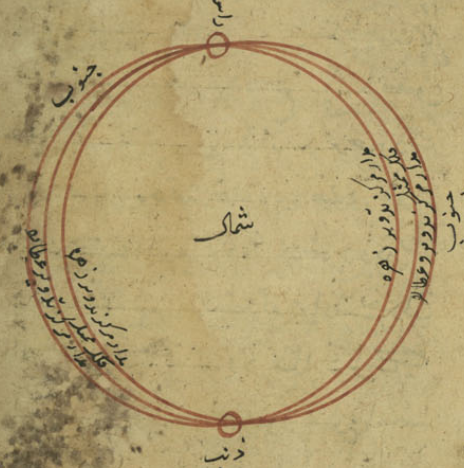 راس
جنوب
شمال
جنوب
مدار مرکز تدویر زهره
فلک ممثل
مدار مرکز تدویر عطارد
مدار مرکز تدویر زهره
فلک ممثل
مدار مرکز تدویر عطارد
ذنب